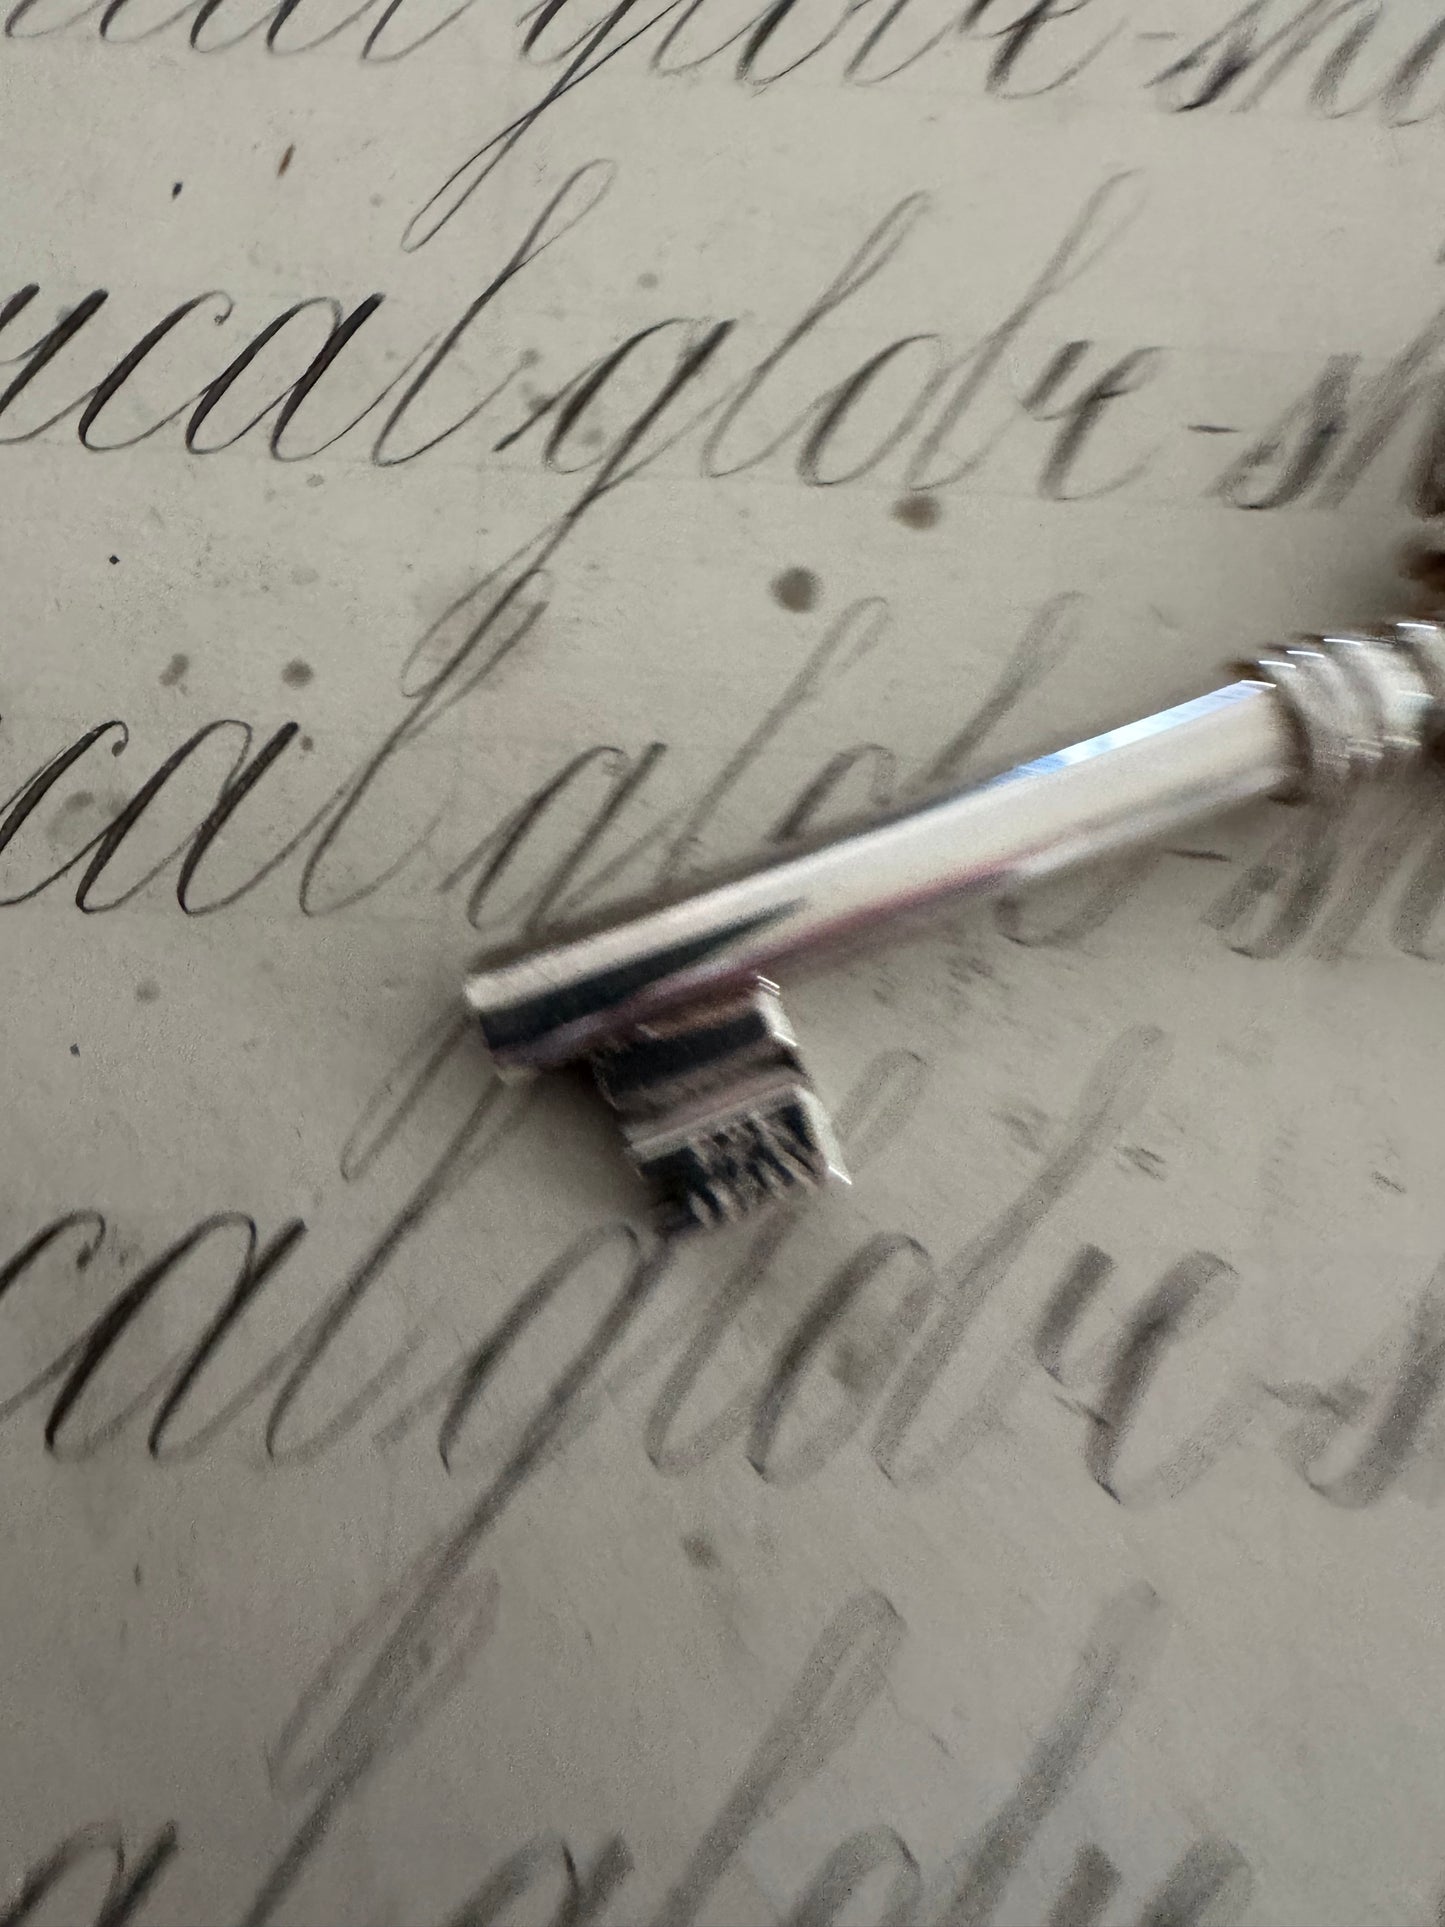 cal globe-sh
ucal globe-sh
cal gl -sh
cal globe-s
al globe